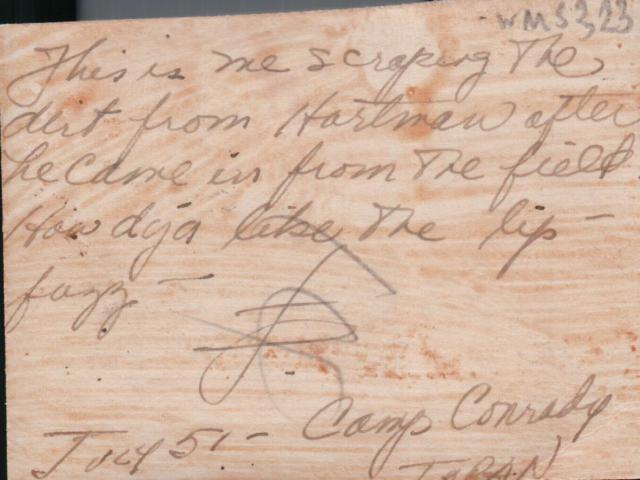 WMS3,23
This is me scraping the
dirt from Hartman after
he came in from the field
How dja like the lip-
fuzz -
July 51 - Camp Conrady
JAPAN